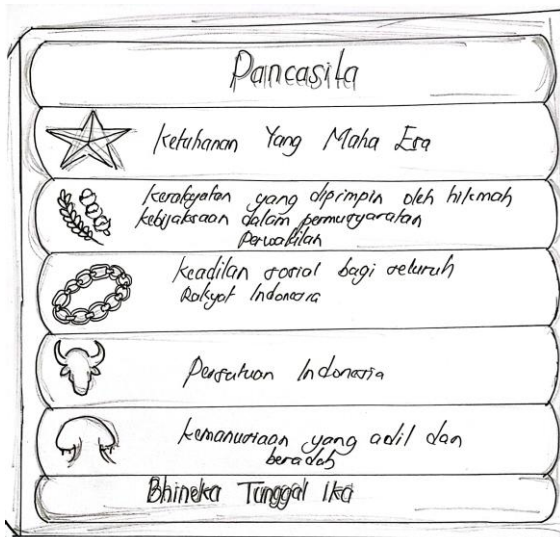 Pancasila
Ketuhanan Yang Maha Esa
Kerakyatan yang diprimpin oleh hikmah
kebijaksaan dalam permusyaratan
Perwakilan
Keadilan sosial bagi seluruh
Rakyat Indonesia
Persatuan Indonesia
Kemanusiaan yang adil dan
beradab
Bhineka Tunggal Ika